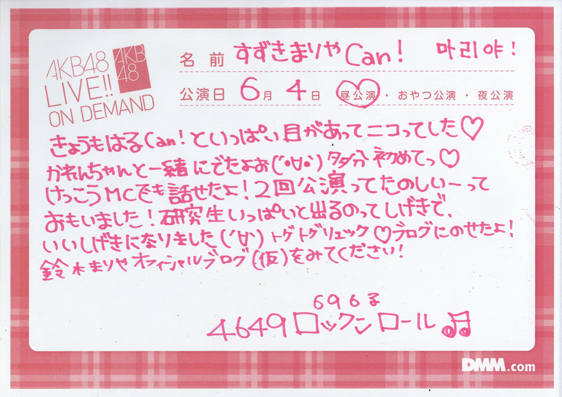 AKB48
LIVE!!
ON DEMAND
AKB
48
名前 すずきまりやCan! 마리야!
公演日 6月 4日 昼公演・おやつ公演・夜公演
きょうもはるCan!といっぱい目があってニコってした♡
かれんちゃんと一緒にでたよぉ(´∀`)多分初めてっ♡
けっこうMCでも話せたよ!2回公演ってたのしぃーって
おもいました!研究生いっぱいと出るのってしげきで、
いいしげきになりました(´∀`)トゲトゲリュック♡ブログにのせたよ!
鈴木まりやオフィシャルブログ(仮)をみてください!
696る
4649ロックンロール♫
DMM.com